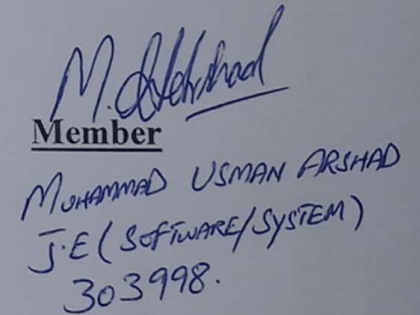 M.
Member
MUHAMMAD USMAN ARSHAD
J.E (SOFTWARE/SYSTEM)
303998.